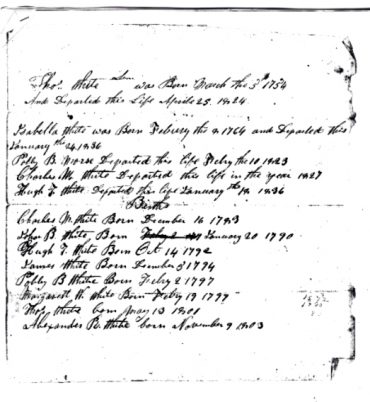 Thos. White Senr was Born March the 3d 1754
And Departed this Life Aprile 25. 1824.
Isabella White was Born Febuery the 2 1764 and Departed this
January the 24 1836
Polly B Morse Departed this life Febry the 10 1823
Charles M. White Departed this life in the year 1827
Hugh F White Departed this life January the 18 1836
Births
Charles M. White Born December 16 1783
John B White, Born January 20 1790
Hugh F. White Born Oct. 14 1792
James White Born December 8 1794
Polly B White Born Febry 2 1797
Margarett W. White Born Febry 19 1799
Thos White born May 13 1801
Alexander R. White born November 9 1803